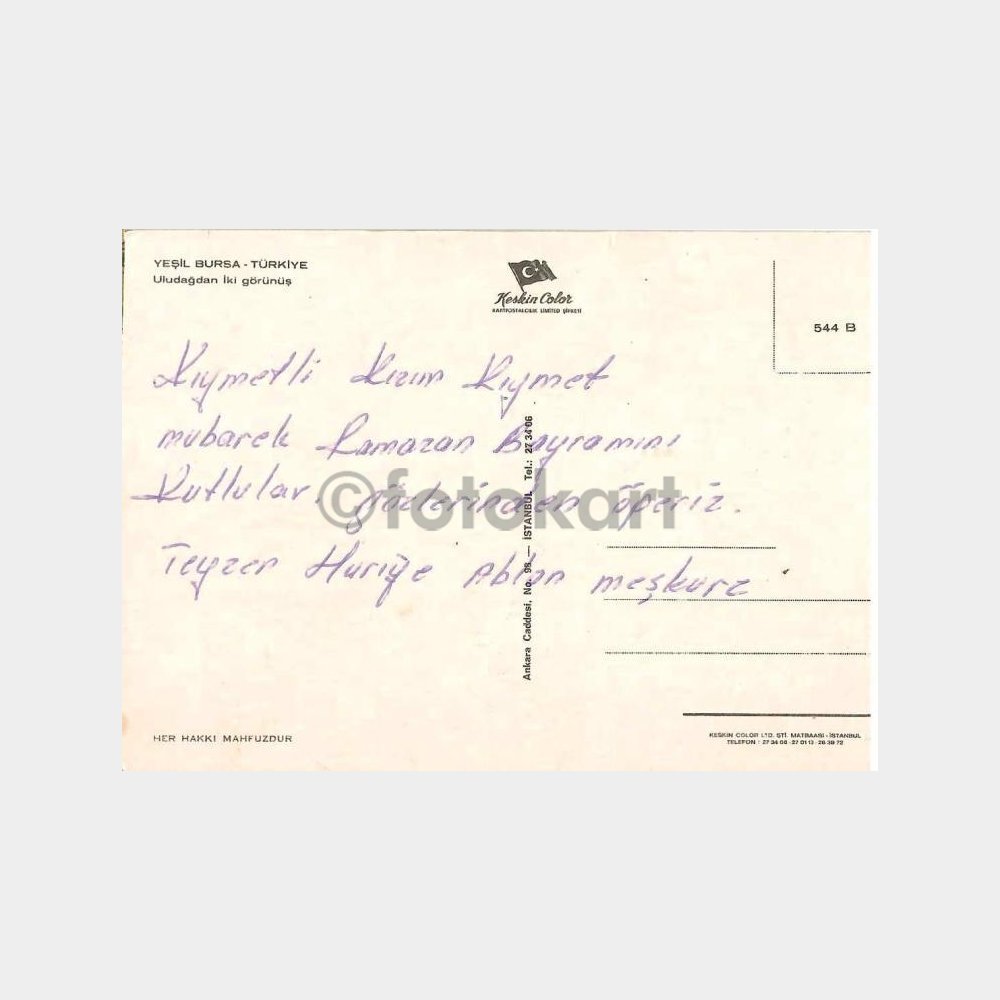 YEŞİL BURSA - TÜRKİYE
Uludağdan İki görünüş
Keskin Color
KARTPOSTALCILIK LİMİTED ŞİRKETİ
544 B
Kıymetli Kızım Kıymet
mubarek Ramazan Bayramını
Kutlular. gözlerinden öperiz.
Teyzen Huriye Ablan meşkure
©fotokart
Ankara Caddesi, No. 98 — İSTANBUL Tel.: 27 34 06
HER HAKKI MAHFUZDUR
KESKİN COLOR LTD. ŞTİ. MATBAASI - İSTANBUL
TELEFON : 27 34 06 - 27 01 13 - 26 39 72